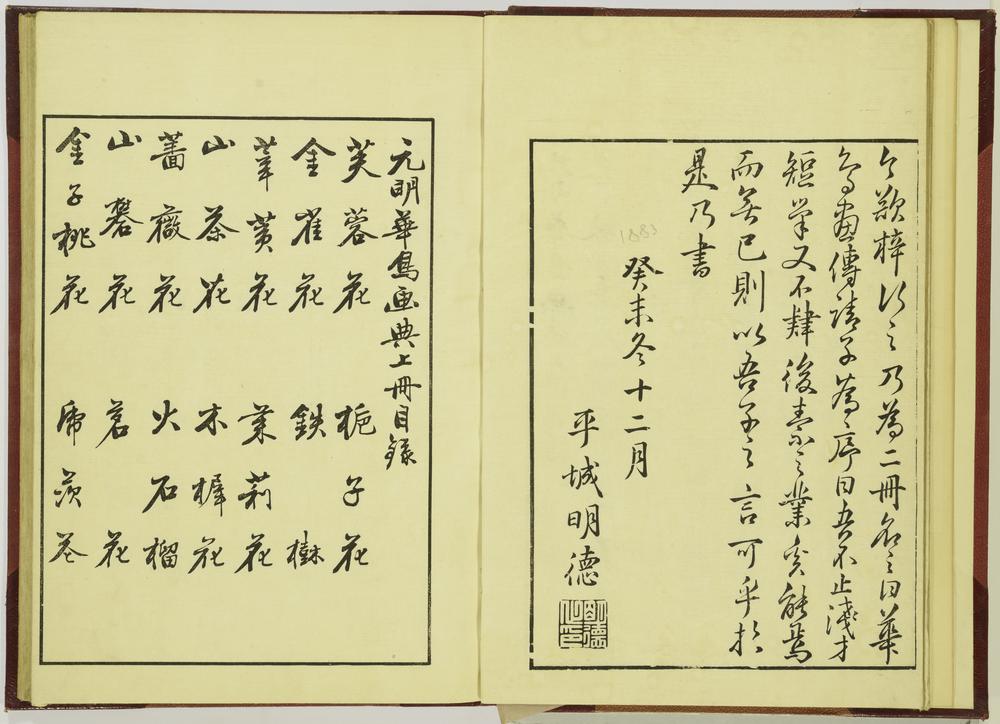 今欲梓行之乃為二冊名之曰華
鳥画傳請予為之序曰吾不止淺才
短学又不肆後素之業奚能焉
而無已則以吾子之言可乎於
是乃書
1883
癸未冬十二月
平城明德
元明華鳥画典上冊目錄
芙蓉花 梔子花
金雀花 鉄樹
葦黄花 茉莉花
山茶花 木樨花
薔薇花 火石榴
山礬花 菪花
金子桃花 虎茨花